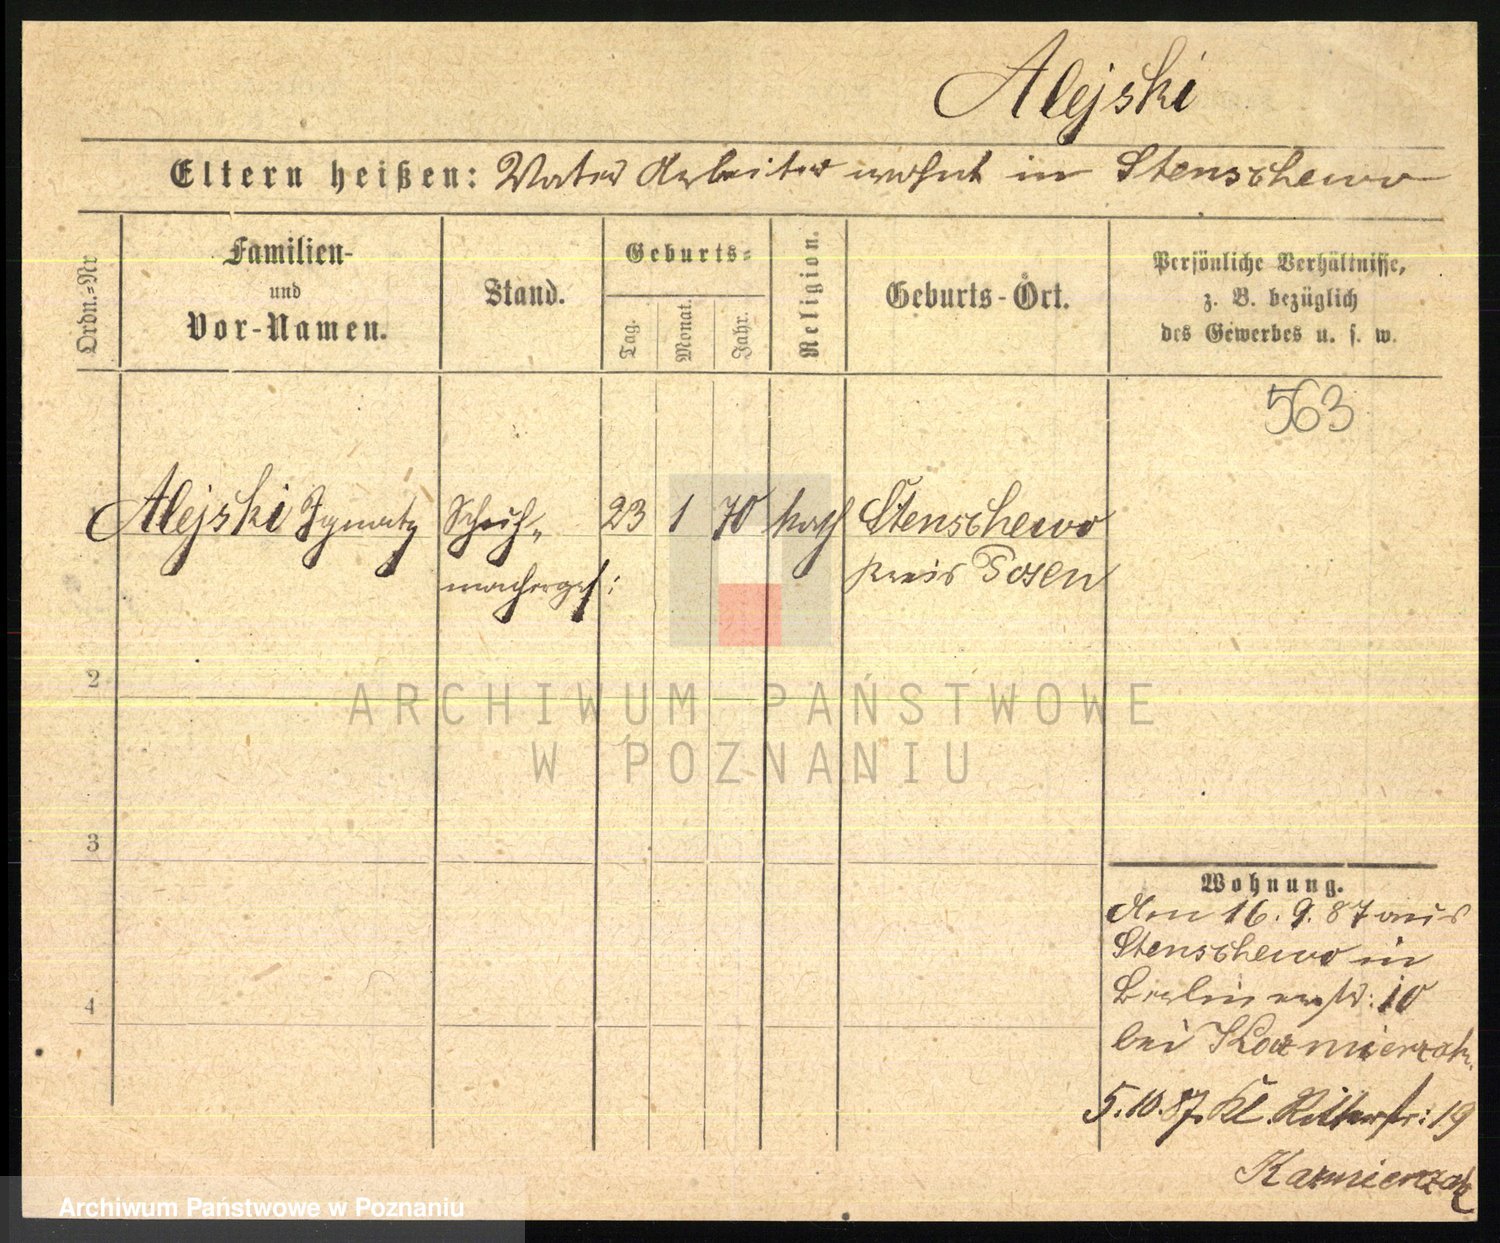 Alejski
Eltern heißen: Vater Arbeiter wohnt in Stenschewo
Ordn.=Nr
Familien-
und
Vor-Namen.
Stand.
Geburts=
Tag.
Monat.
Jahr.
Religion.
Geburts-Ort.
Persönliche Verhältnisse,
z. B. bezüglich
des Gewerbes u. s. w.
563
1 Alejski Ignatz Schuh- 23 1 70 kath Stenschewo
machergs: Kreis Posen
2
ARCHIWUM PAŃSTWOWE
W POZNANIU
3
Wohnung.
Am 16. 9. 87 aus
Stenschewo in
4
Berlinerstr: 10
bei Kazmierzak.
5.10.87. Kl. Ritterstr: 19
Kazmierzak
Archiwum Państwowe w Poznaniu